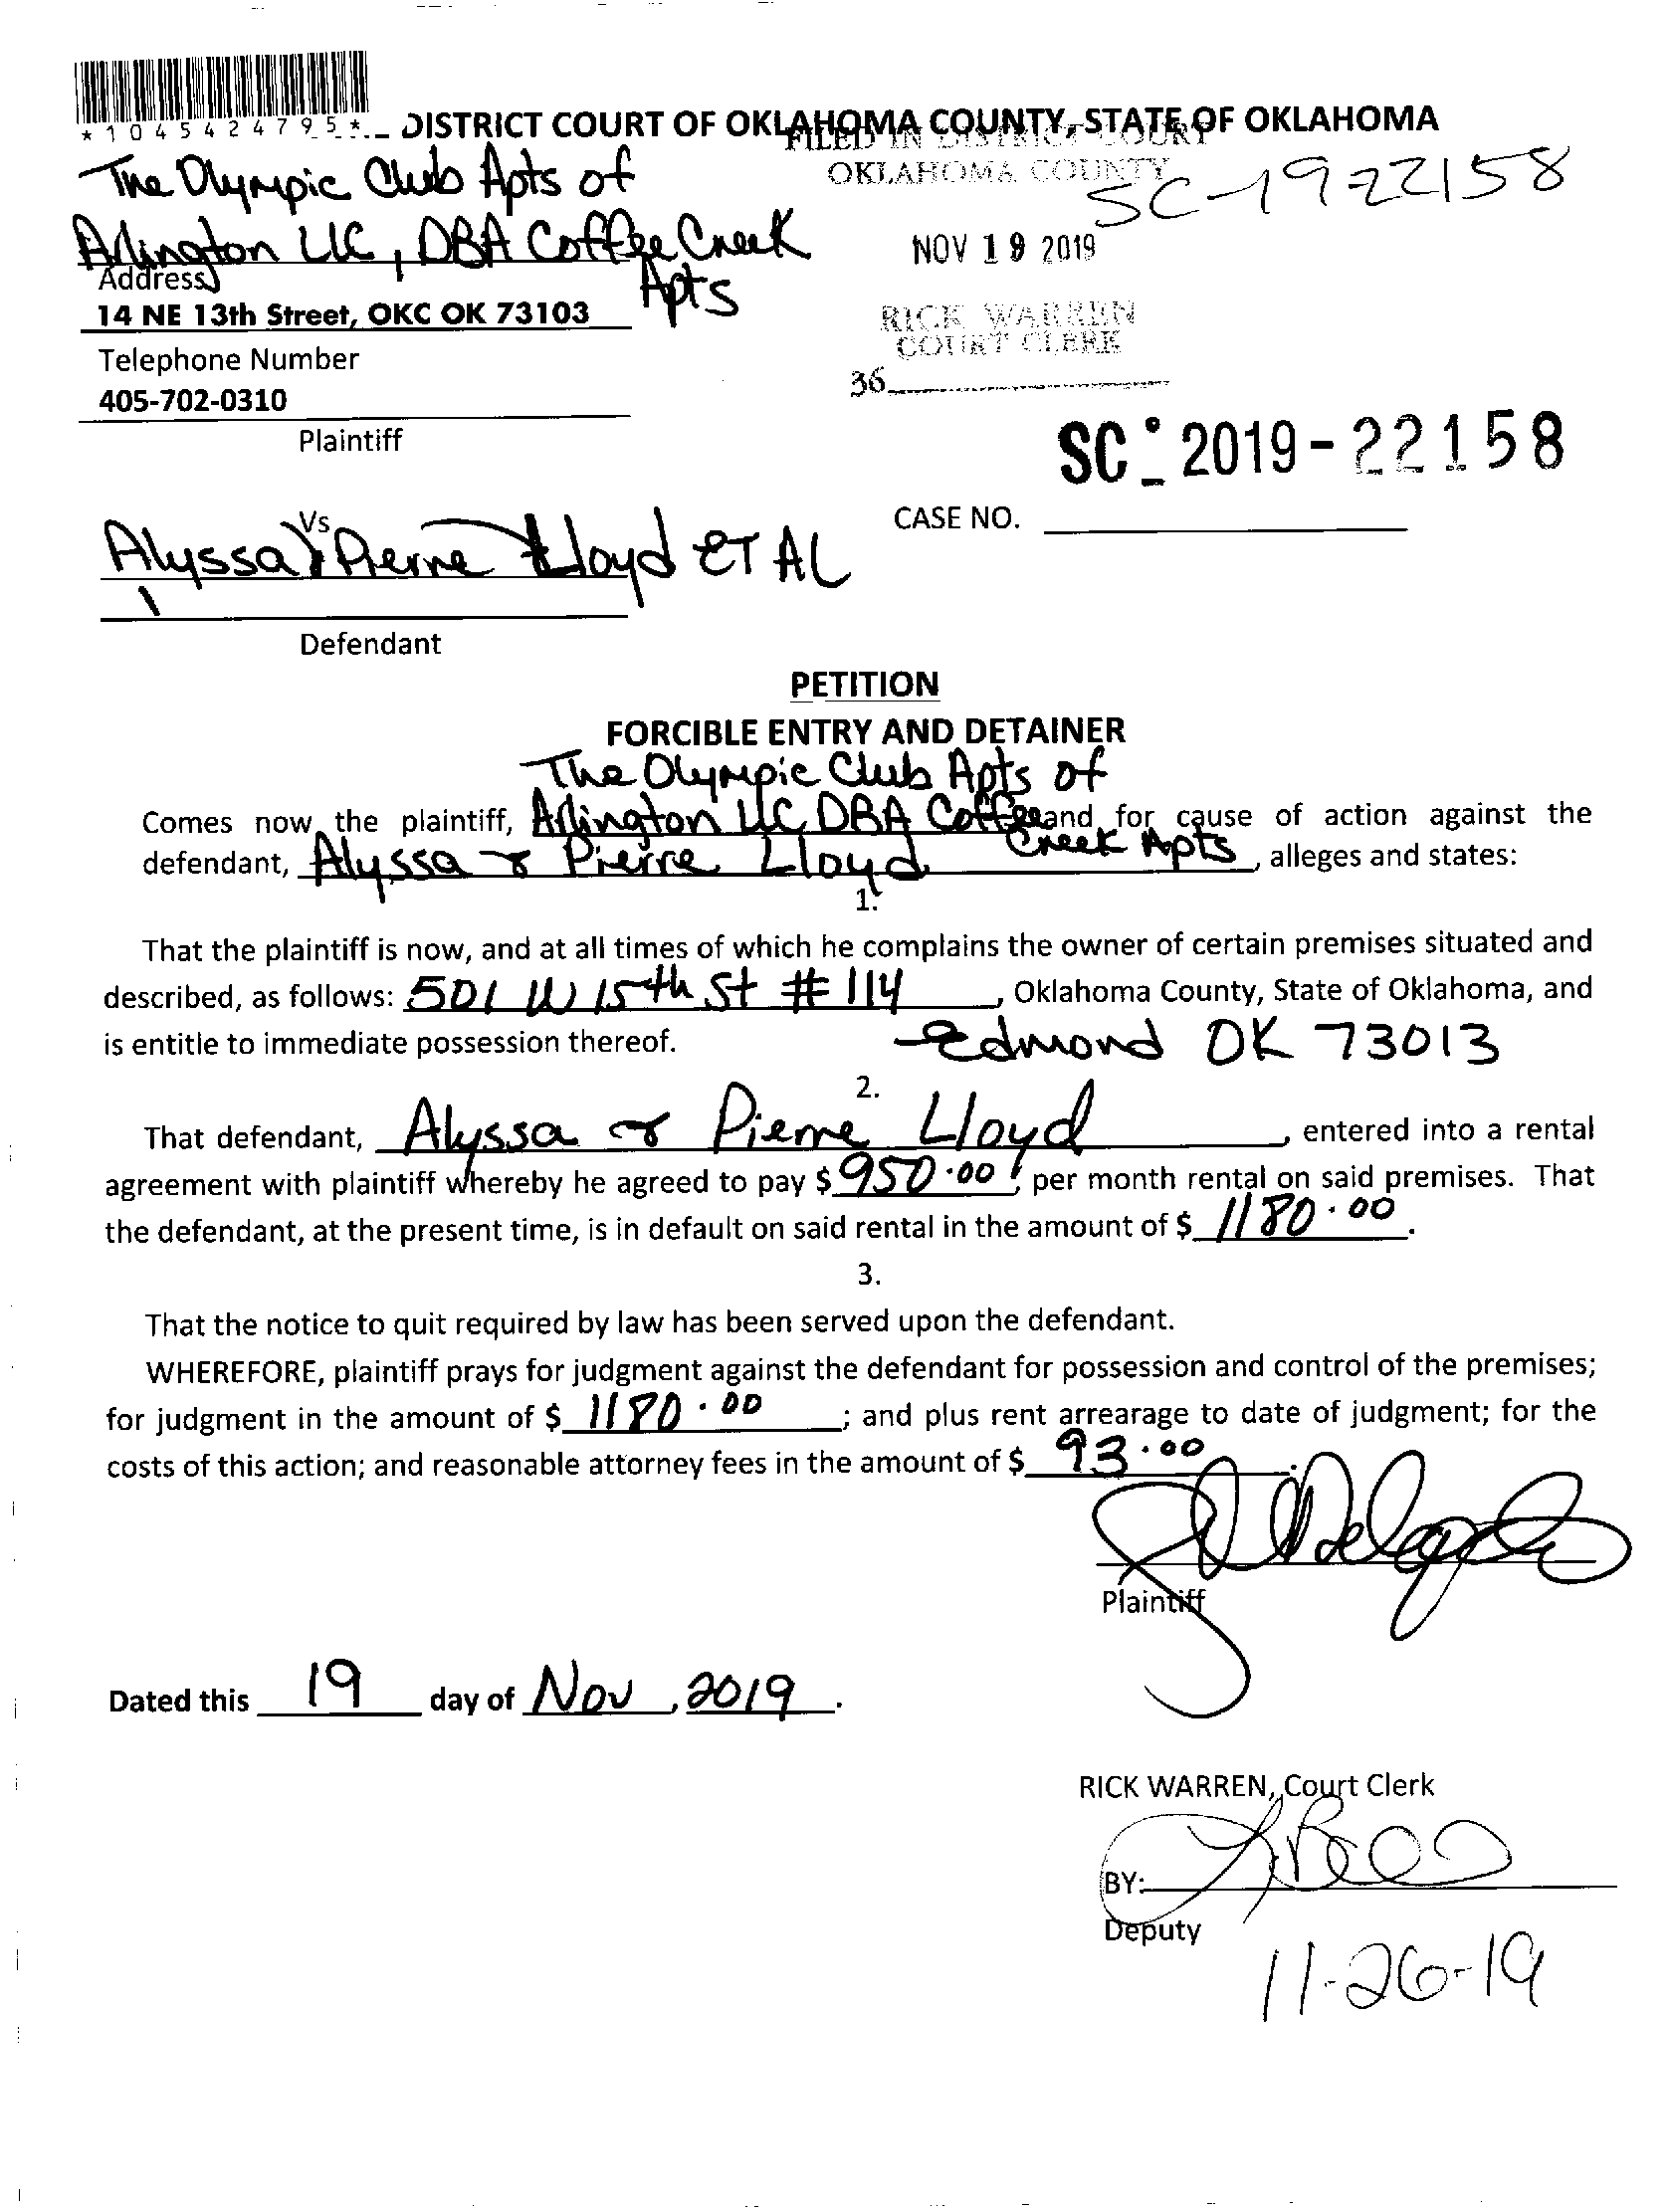 *1045424795*
DISTRICT COURT OF OKLAHOMA COUNTY, STATE OF OKLAHOMA
FILED IN DISTRICT COURT
OKLAHOMA COUNTY
SC-1922158
The Olympic Club Apts of
Arlington LLC, DBA Coffee Creek
Apts
NOV 19 2019
Address
14 NE 13th Street, OKC OK 73103
RICK WARREN
COURT CLERK
Telephone Number
36
405-702-0310
Plaintiff
SC-2019-22158
CASE NO.
Vs
Alyssa & Pierre Lloyd ET AL
Defendant
PETITION
FORCIBLE ENTRY AND DETAINER
The Olympic Club Apts of
Comes now the plaintiff, Arlington LLC DBA Coffee and for cause of action against the
Creek Apts
defendant, Alyssa & Pierre Lloyd, alleges and states:
1.
That the plaintiff is now, and at all times of which he complains the owner of certain premises situated and
described, as follows: 501 W 15th St # 114, Oklahoma County, State of Oklahoma, and
is entitle to immediate possession thereof. Edmond OK 73013
2.
That defendant, Alyssa & Pierre Lloyd, entered into a rental
agreement with plaintiff whereby he agreed to pay $ 950.00, per month rental on said premises. That
the defendant, at the present time, is in default on said rental in the amount of $ 1180.00.
3.
That the notice to quit required by law has been served upon the defendant.
WHEREFORE, plaintiff prays for judgment against the defendant for possession and control of the premises;
for judgment in the amount of $ 1180.00; and plus rent arrearage to date of judgment; for the
costs of this action; and reasonable attorney fees in the amount of $ 93.00.
Plaintiff
Dated this 19 day of Nov, 2019.
RICK WARREN, Court Clerk
BY:
Deputy
11-26-19